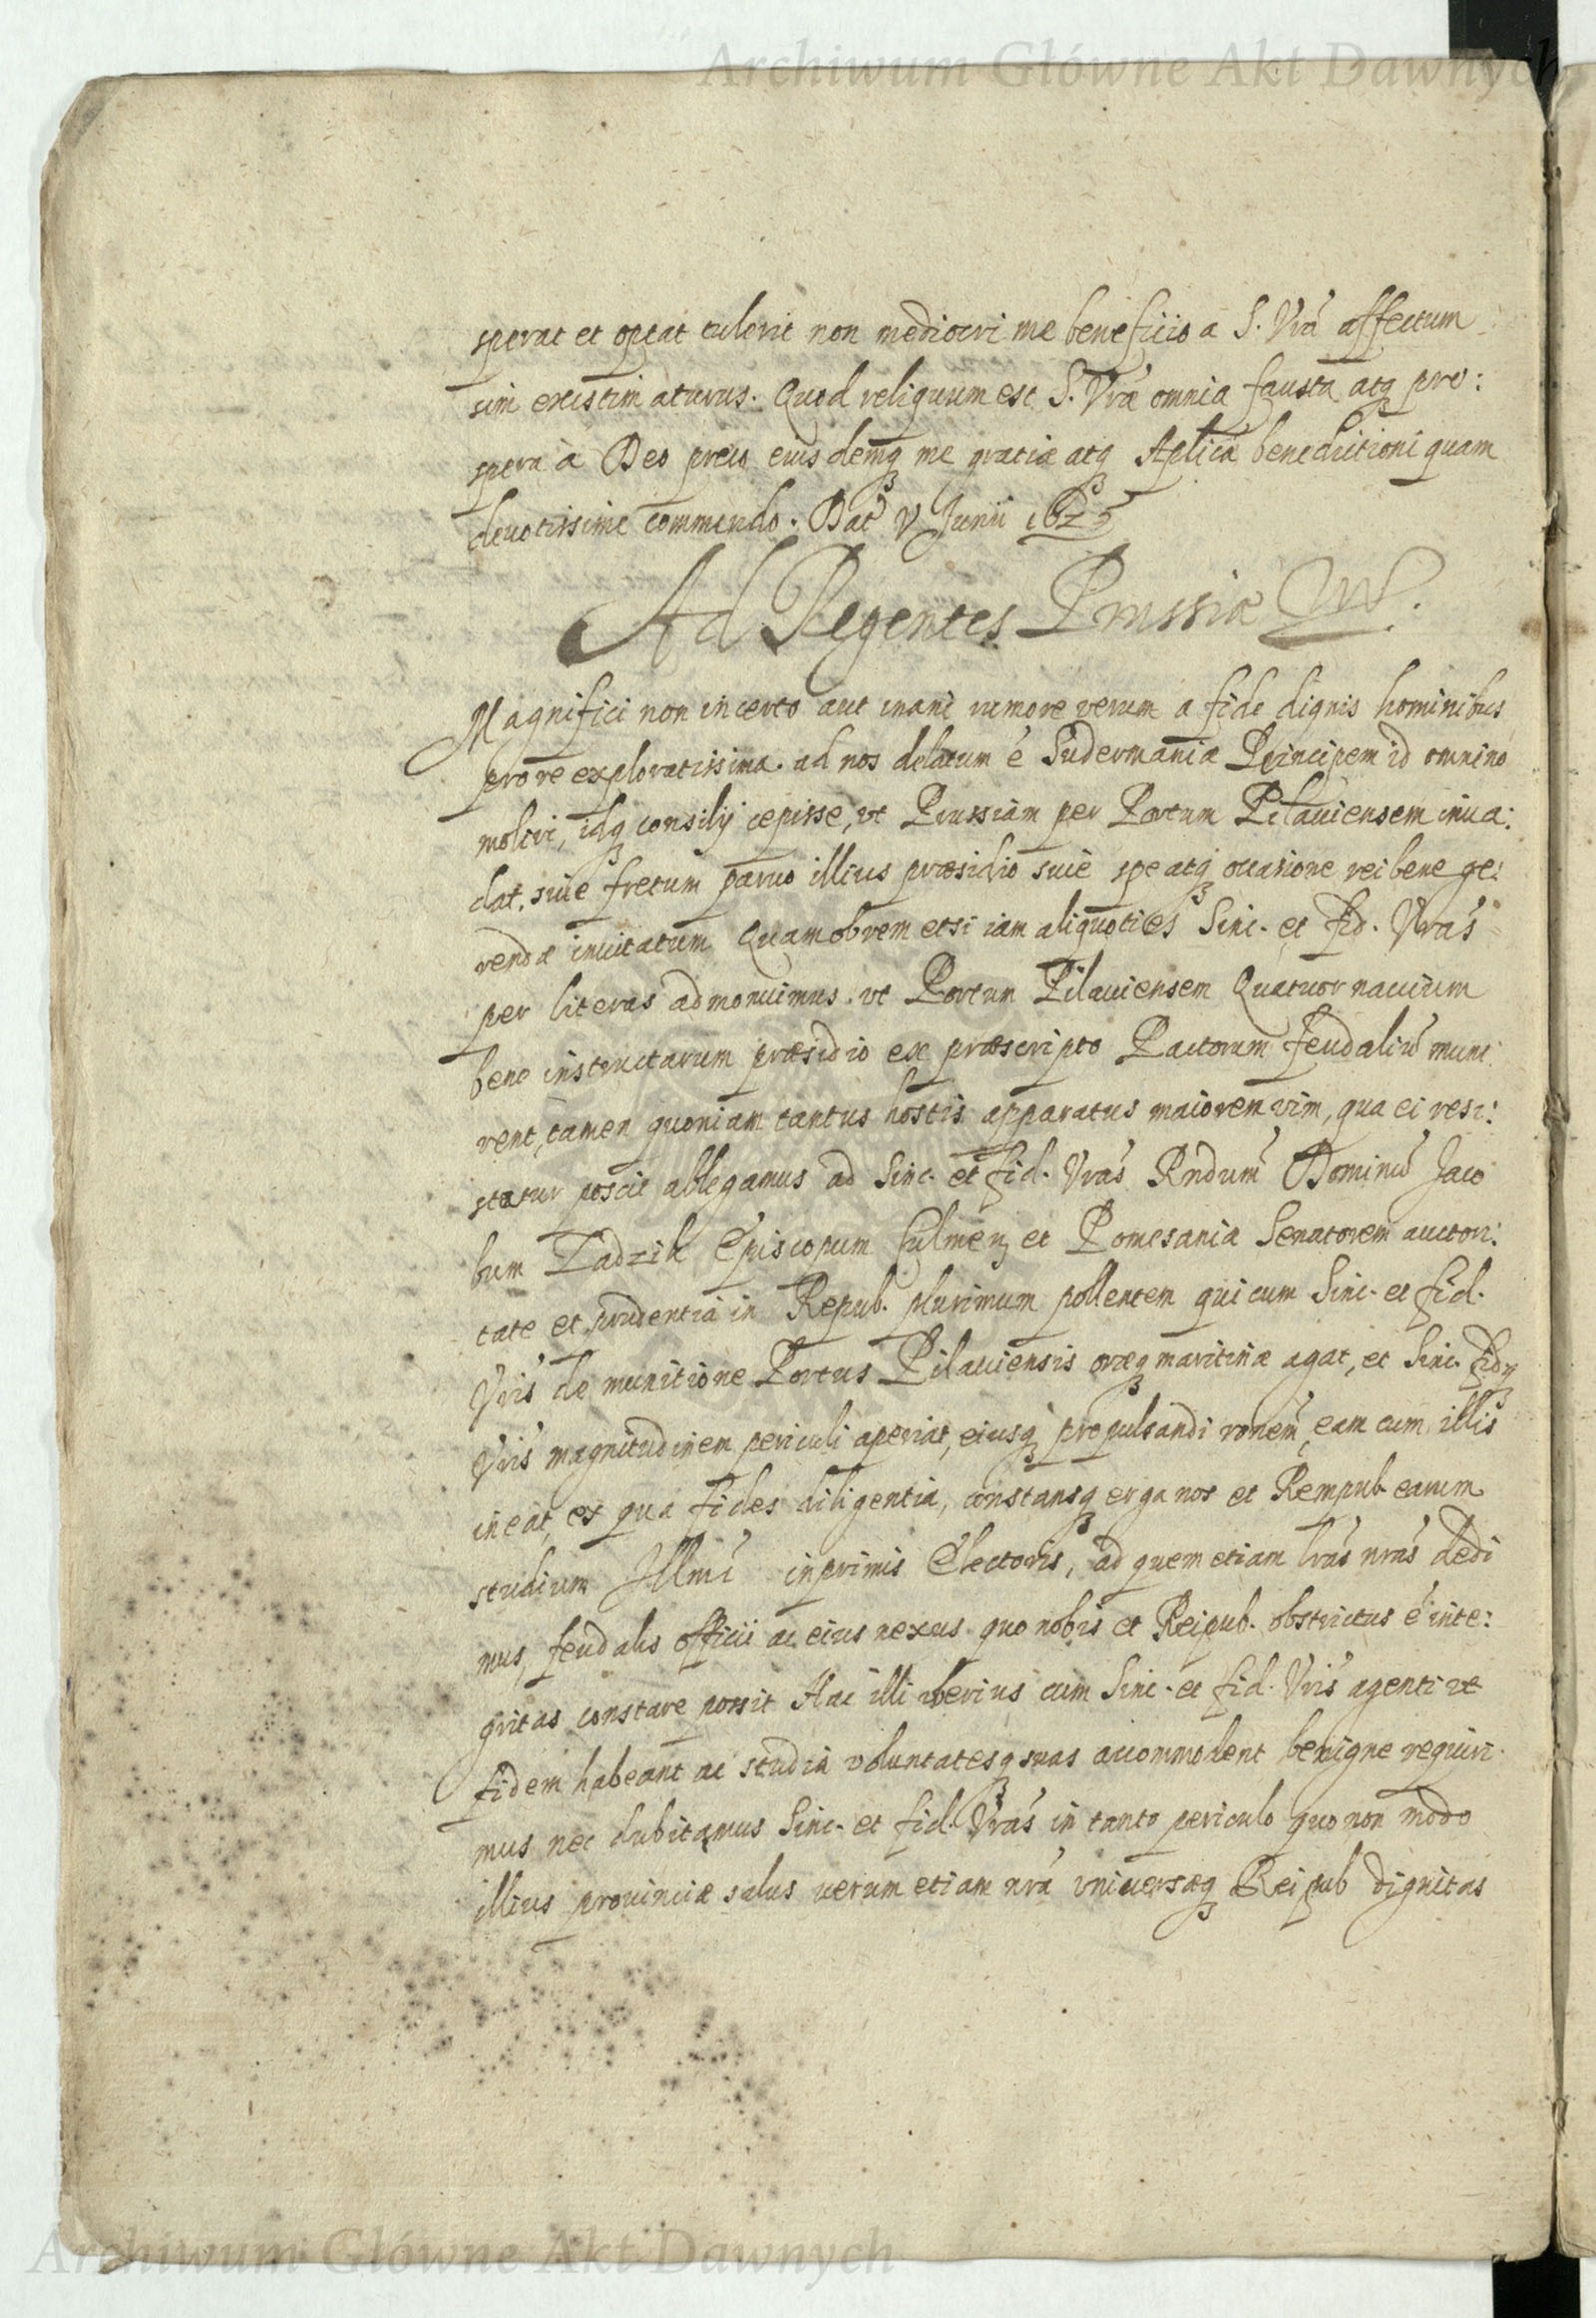 Archiwum Główne Akt Dawnych
sperat et optat tulerit non mediocri me beneficio a S. Vrã affectum
sim existimaturus. Quod reliquum est S. Vræ omnia fausta atq pro:
spera à Deo precor eiusdemq me gratiæ atq Aplicæ benedictioni quam
devotissime commendo. Dat V Junii 1625
Ad Regentes Prussiæ
Magnifici non incerto aut inani rumore verum a fide dignis hominibus
pro re exploratissima ad nos delatum é Sudermaniæ Principem id omnino
moliri, idq consilij cepisse, vt Prussiam per Portum Pilauiensem inua:
dat, siue fretum paruo illius præsidio siue spe atq occasione rei bene ge:
rendæ inuitatum Quamobrem etsi iam aliquoties Sinc. et Fid. Vras
per literas admonuimus vt Portum Pilauiensem Quatuor nauium
bene instructarum præsidio ex præscripto Pactorum feudaliũ muni
rent, tamen quoniam tantus hostis apparatus maiorem vim, qua ei resi:
statur poscit ablegamus ad Sinc. et fid. Vras Rndum Dominũ Jaco
bum Zadzik Episcopum Culmen et Pomesaniæ Senatorem auctori:
tate et prudentia in Repub. plurimum pollentem qui cum Sinc. et fid.
Vris de munitione Portus Pilauiensis oræq maritimæ agat, et Sinc. Fidq
Vris magnitudinem periculi aperiat, eiusq propulsandi ronem eam cum illis
ineat, ex qua fides diligentia, constansq erga nos et Rempub. earum
studium Illmi inprimis Electoris, ad quem etiam lras nras dedi
mus, feudalis officii ac eius nexus quo nobis et Reipub. obstrictus é inte:
gritas constare possit Hac illi vberius cum Sinc. et fid. Vris agenti vt
fidem habeant ac studia voluntatesq suas accommodent benigne requiri
mus nec dubitamus Sinc. et fid. Vras in tanto periculo quo non modo
illius prouinciæ salus uerum etiam nra vniuersæq Reipub dignitas
Archiwum Główne Akt Dawnych